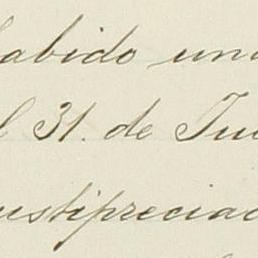 habido una
el 31. de Ju
justipreciad